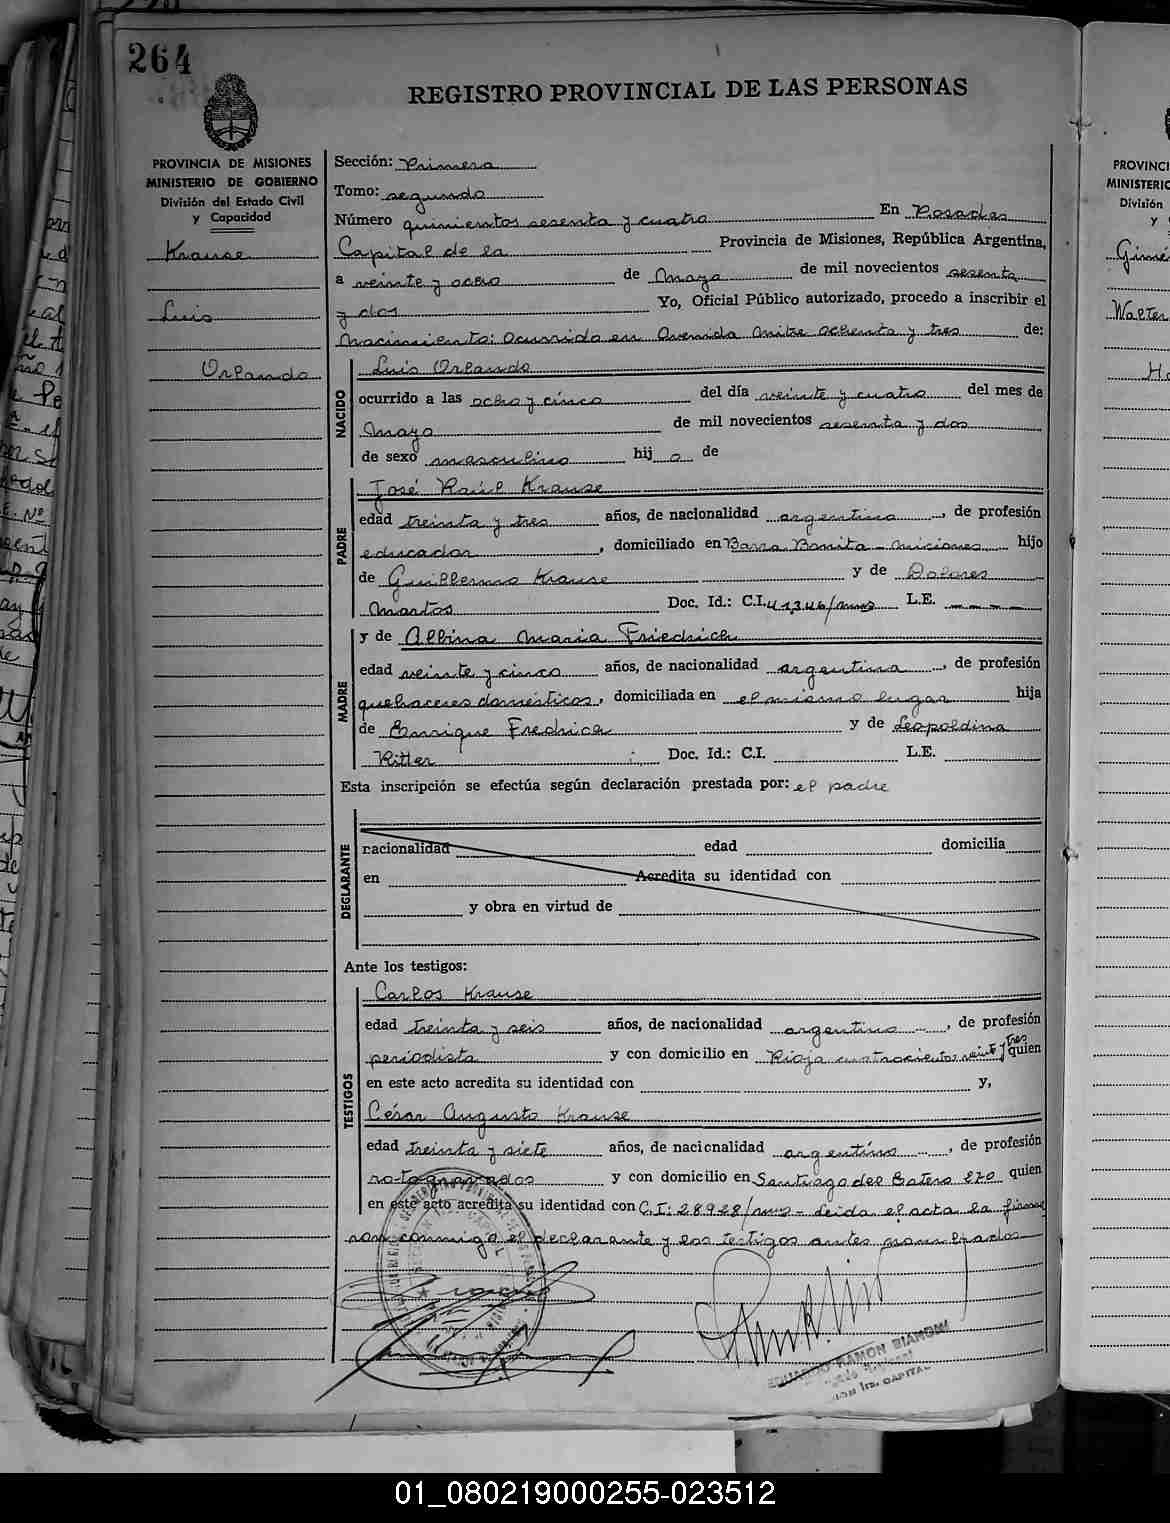 264
REGISTRO PROVINCIAL DE LAS PERSONAS
PROVINCIA DE MISIONES
MINISTERIO DE GOBIERNO
División del Estado Civil
y Capacidad
Krause
Luis
Orlando
Sección: Primera
Tomo: segundo
Número quinientos sesenta y cuatro En Posadas
Capital de la Provincia de Misiones, República Argentina,
a veinte y ocho de Mayo de mil novecientos sesenta
y dos Yo, Oficial Público autorizado, procedo a inscribir el
Nacimiento: Ocurrido en Avenida Mitre ochenta y tres de:
NACIDO
Luis Orlando
ocurrido a las ocho y cinco del día veinte y cuatro del mes de
Mayo de mil novecientos sesenta y dos
de sexo masculino hij o de
PADRE
José Raúl Krause
edad treinta y tres años, de nacionalidad argentino, de profesión
educador, domiciliado en Barra Bonita - Misiones hijo
de Guillermo Krause y de Dolores
Martos Doc. Id.: C.I. 41346/mns L.E. - - - -
MADRE
y de Albina Maria Friedrich
edad veinte y cinco años, de nacionalidad argentina, de profesión
quehaceres domésticos, domiciliada en el mismo lugar hija
de Enrique Fredrich y de Leopoldina
Ritter Doc. Id.: C.I. L.E.
Esta inscripción se efectúa según declaración prestada por: el padre
DECLARANTE
nacionalidad edad domicilia
en Acredita su identidad con
y obra en virtud de
Ante los testigos:
TESTIGOS
Carlos Krause
edad treinta y seis años, de nacionalidad argentino, de profesión
periodista y con domicilio en Rioja cuatrocientos veinte y tres quien
en este acto acredita su identidad con y,
César Augusto Krause
edad treinta y siete años, de nacionalidad argentino, de profesión
y con domicilio en Santiago del Estero 270 quien
en este acto acredita su identidad con C.I: 28928/mns - Leida el acta la firma
ron conmigo el declarante y los testigos antes nombrados
RAMON BIANCHI
CAPITAL
PROVINCI
MINISTERIO
División
y
Gimé
Walter
01_080219000255-023512